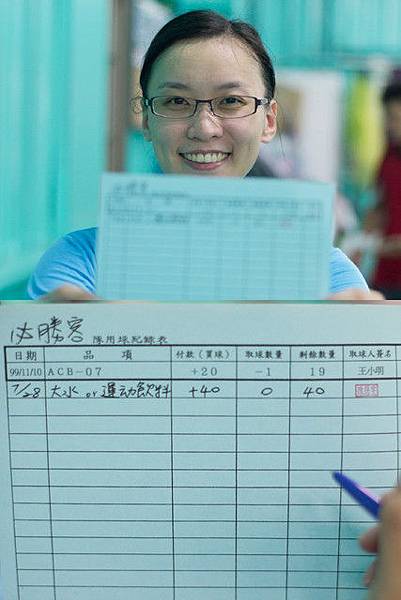 必勝客 隊用球記錄表
日期 品項 付款(買球) 取球數量 剩餘數量 取球人簽名
99/11/10 ACB-07 +20 -1 19 王小明
7/28 大水 or 運动飲料 +40 0 40